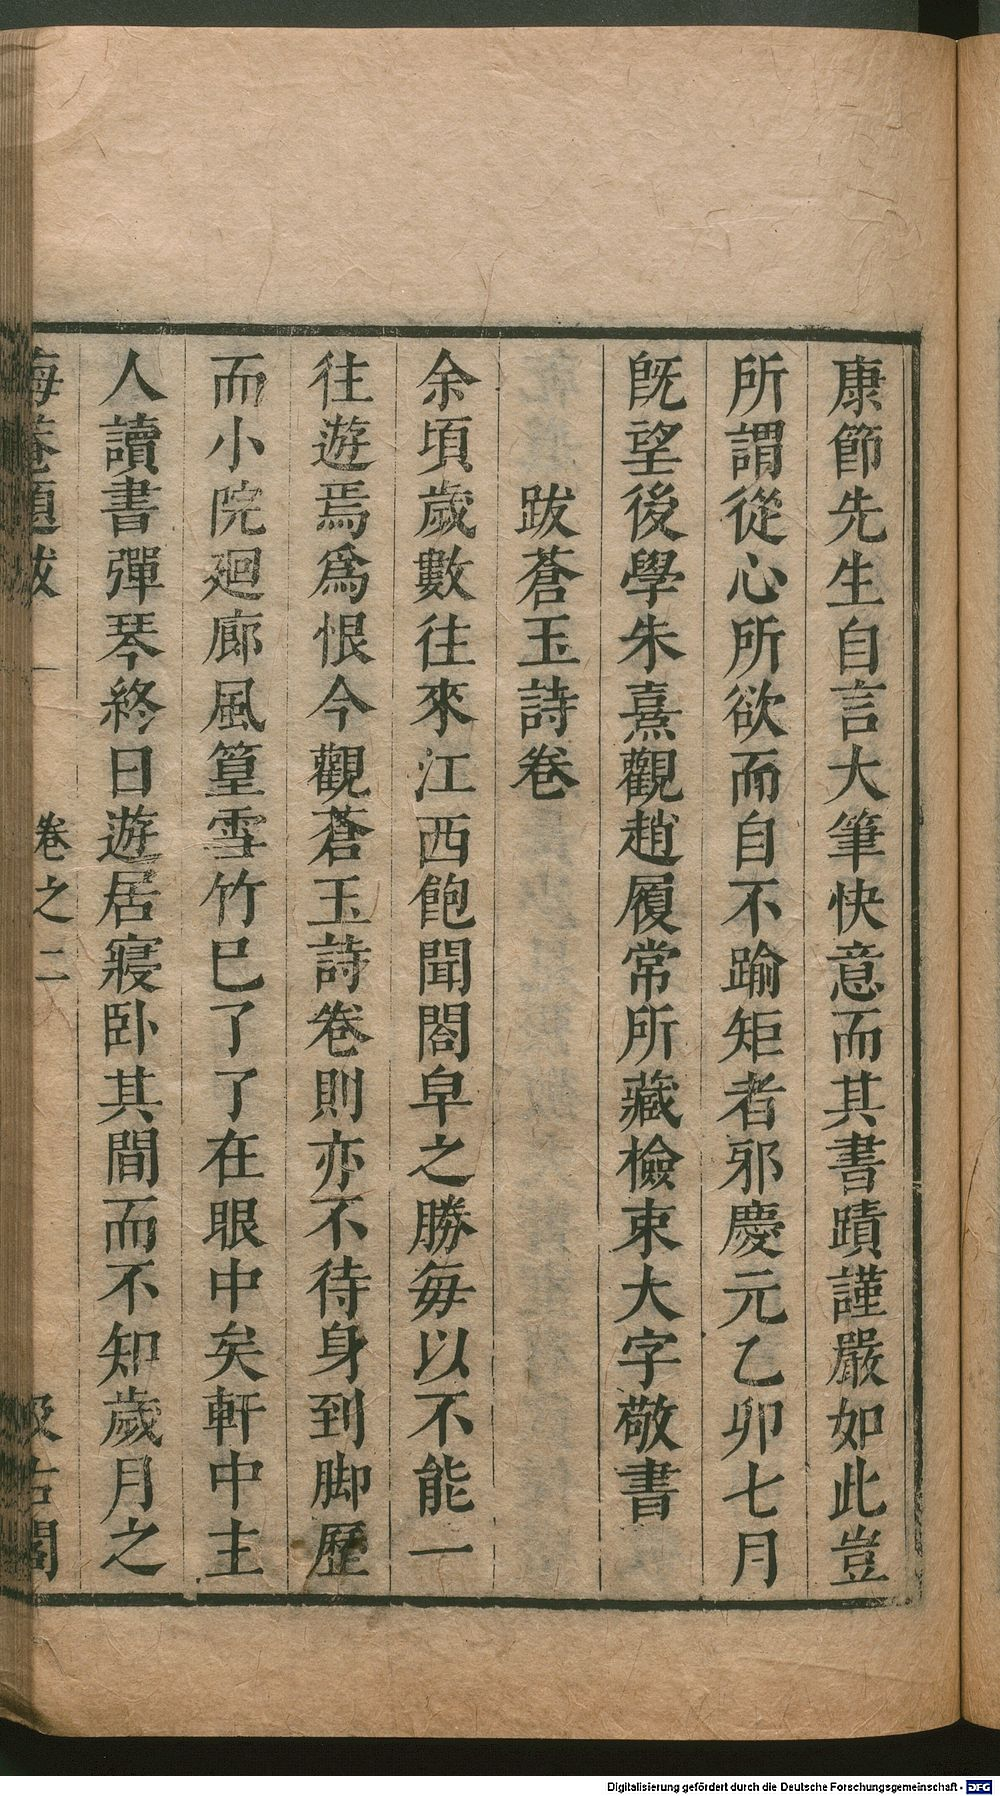 康節先生自言大筆快意而其書蹟謹嚴如此豈
所謂從心所欲而自不踰矩者邪慶元乙卯七月
旣望後學朱熹觀趙履常所藏檢束大字敬書
跋蒼玉詩卷
余頃歲數往來江西飽聞閤皁之勝每以不能一
往遊焉爲恨今觀蒼玉詩卷則亦不待身到脚歷
而小院廻廊風篁雪竹巳了了在眼中矣軒中主
人讀書彈琴終日遊居寢卧其間而不知歲月之
晦菴題跋 卷之二 汲古閣
Digitalisierung gefördert durch die Deutsche Forschungsgemeinschaft - DFG